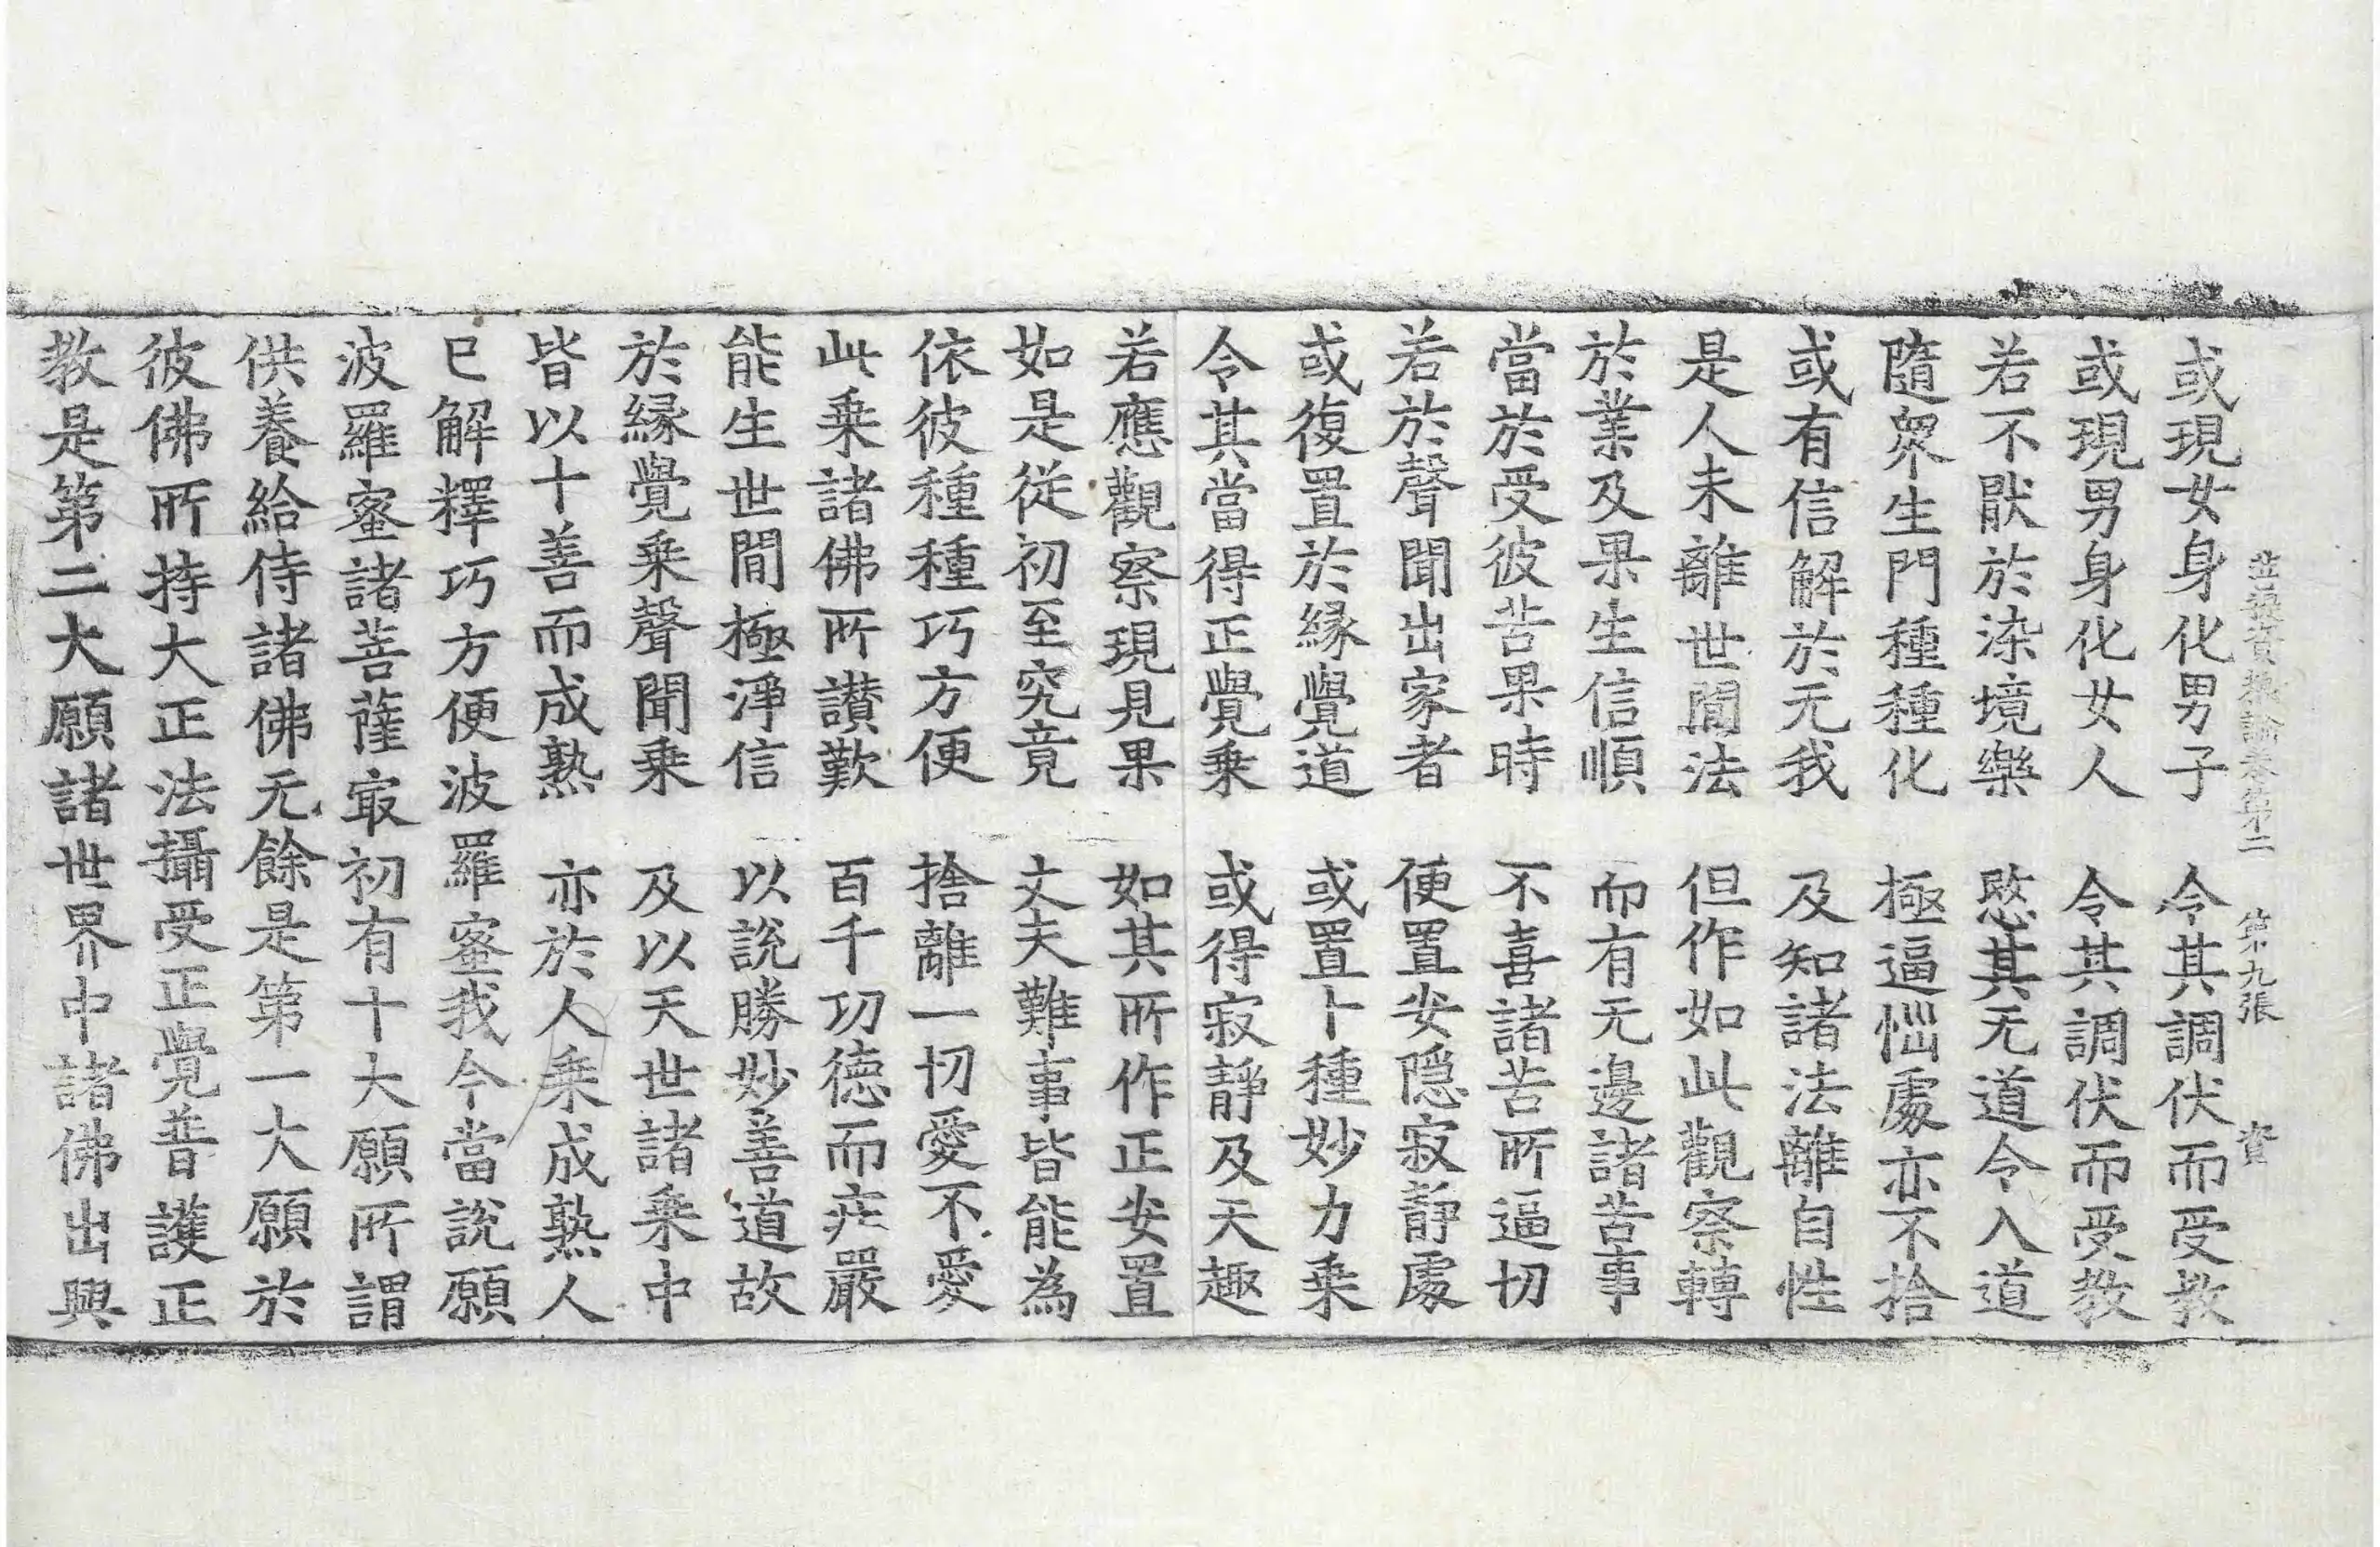 菩提資糧論卷第二　第九張　資
或現女身化男子　令其調伏而受教
或現男身化女人　令其調伏而受教
若不猒於染境樂　愍其无道令入道
隨衆生門種種化　極逼惱處亦不捨
或有信解於无我　及知諸法離自性
是人未離世間法　但作如此觀察轉
於業及果生信順　而有无邊諸苦事
當於受彼苦果時　不喜諸苦所逼切
若於聲聞出家者　便置安隱寂靜處
或復置於緣覺道　或置卜種妙力乗
令其當得正覺乗　或得寂靜及天趣
若應觀察現見果　如其所作正安置
如是從初至究竟　丈夫難事皆能為
依彼種種巧方便　捨離一切愛不愛
此乗諸佛所讃歎　百千功德而莊嚴
能生世間極淨信　以說勝妙善道故
於緣覺乗聲聞乗　及以天世諸乗中
皆以十善而成熟　亦於人乗成熟人
已解釋巧方便波羅蜜我今當說願
波羅蜜諸菩薩㝡初有十大願所謂
供養給侍諸佛无餘是第一大願於
彼佛所持大正法攝受正覺普護正
教是第二大願諸世界中諸佛出興